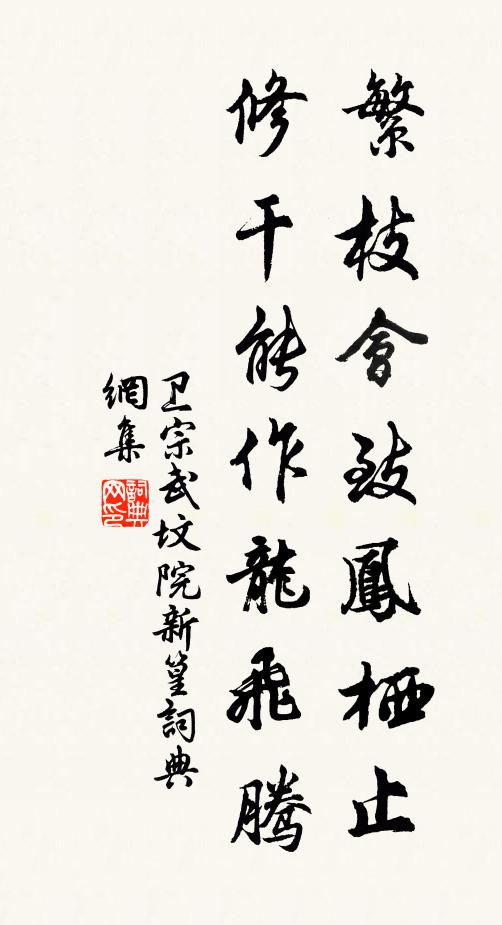 繁枝會致鳳栖止
修干能作龍飛騰
卫宗武坟院新篁詞典
網集
詞典
网印